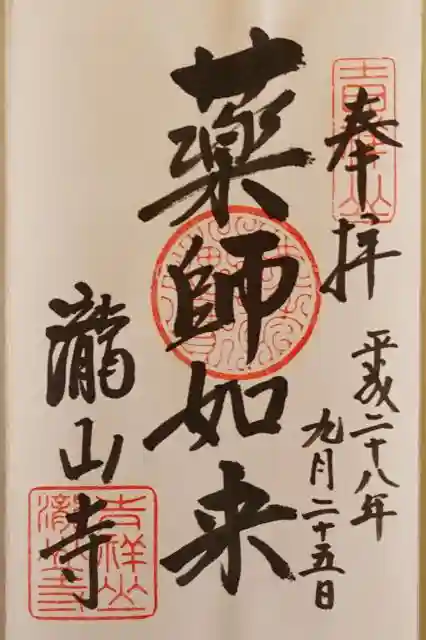 奉拝
平成二十八年
九月二十五日
薬師如来
瀧山寺
吉祥山
吉祥山
瀧山寺